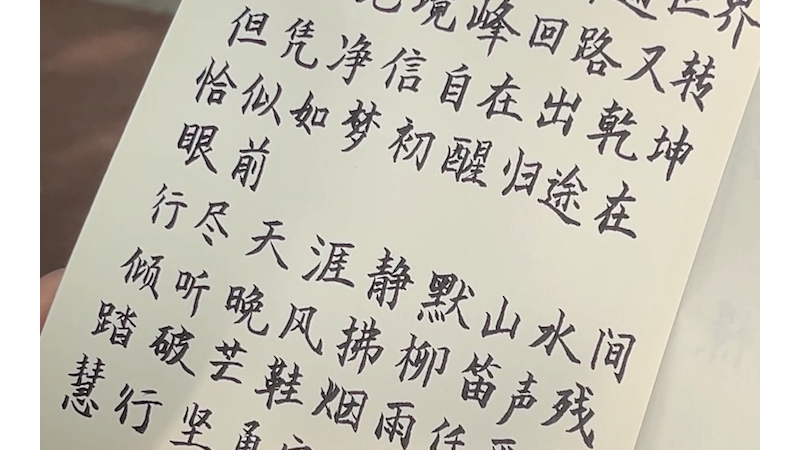 境峰回路又转
但凭净信自在出乾坤
恰似如梦初醒归途在
眼前
行尽天涯静默山水间
倾听晚风拂柳笛声残
踏破芒鞋烟雨任
慧行坚勇